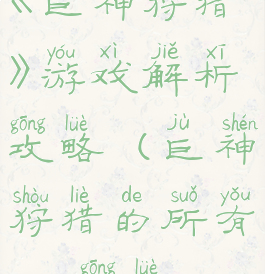 《巨神狩猎
yóu xì jiě xī
》游戏解析
gōng lüè jù shén
攻略（巨神
shòu liè de suǒ yǒu
狩猎的所有
gōng lüè